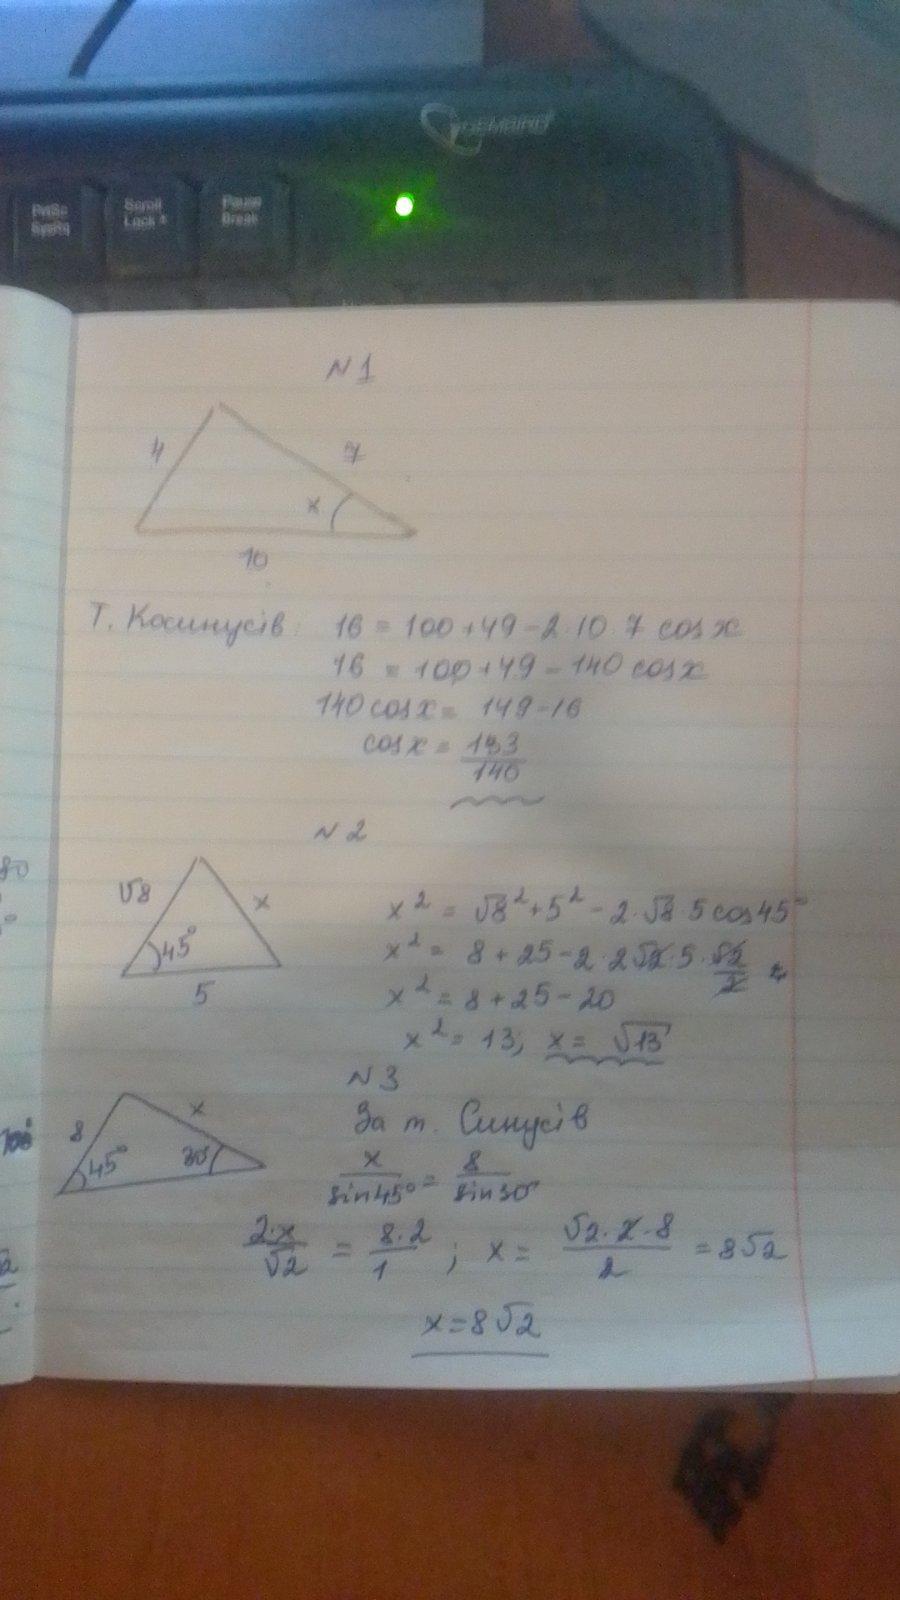 GEMBIRD
PrtSc
SysRq
Scroll
Lock
Pause
Break
N 1
4
7
x
10
Т. Косинусів: 16 = 100 + 49 - 2·10·7 cos x
16 = 100 + 49 - 140 cos x
140 cos x = 149 - 16
cos x = 133/140
N 2
√8
x
45°
5
x² = √8² + 5² - 2·√8·5 cos 45°
x² = 8 + 25 - 2·2√2·5·√2/2
x² = 8 + 25 - 20
x² = 13; x = √13
N 3
8
x
45°
30°
За т. Синусів
x/sin45° = 8/sin30°
2·x/√2 = 8·2/1 ; x = √2·2·8/2 = 8√2
x = 8√2